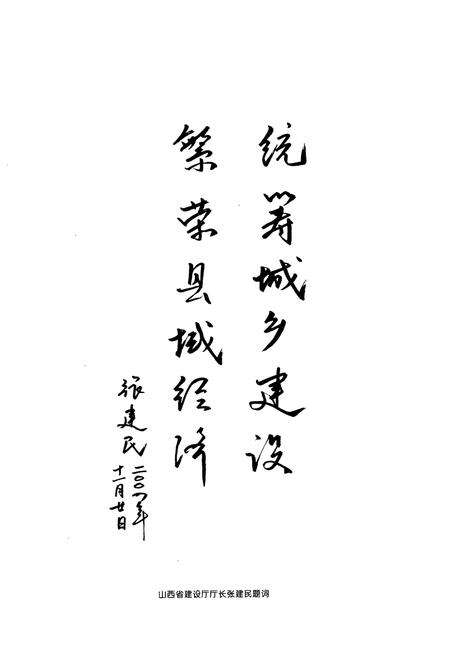 统筹城乡建设
繁荣县域经济
张建民
二〇〇八年
十一月廿日
山西省建设厅厅长张建民题词